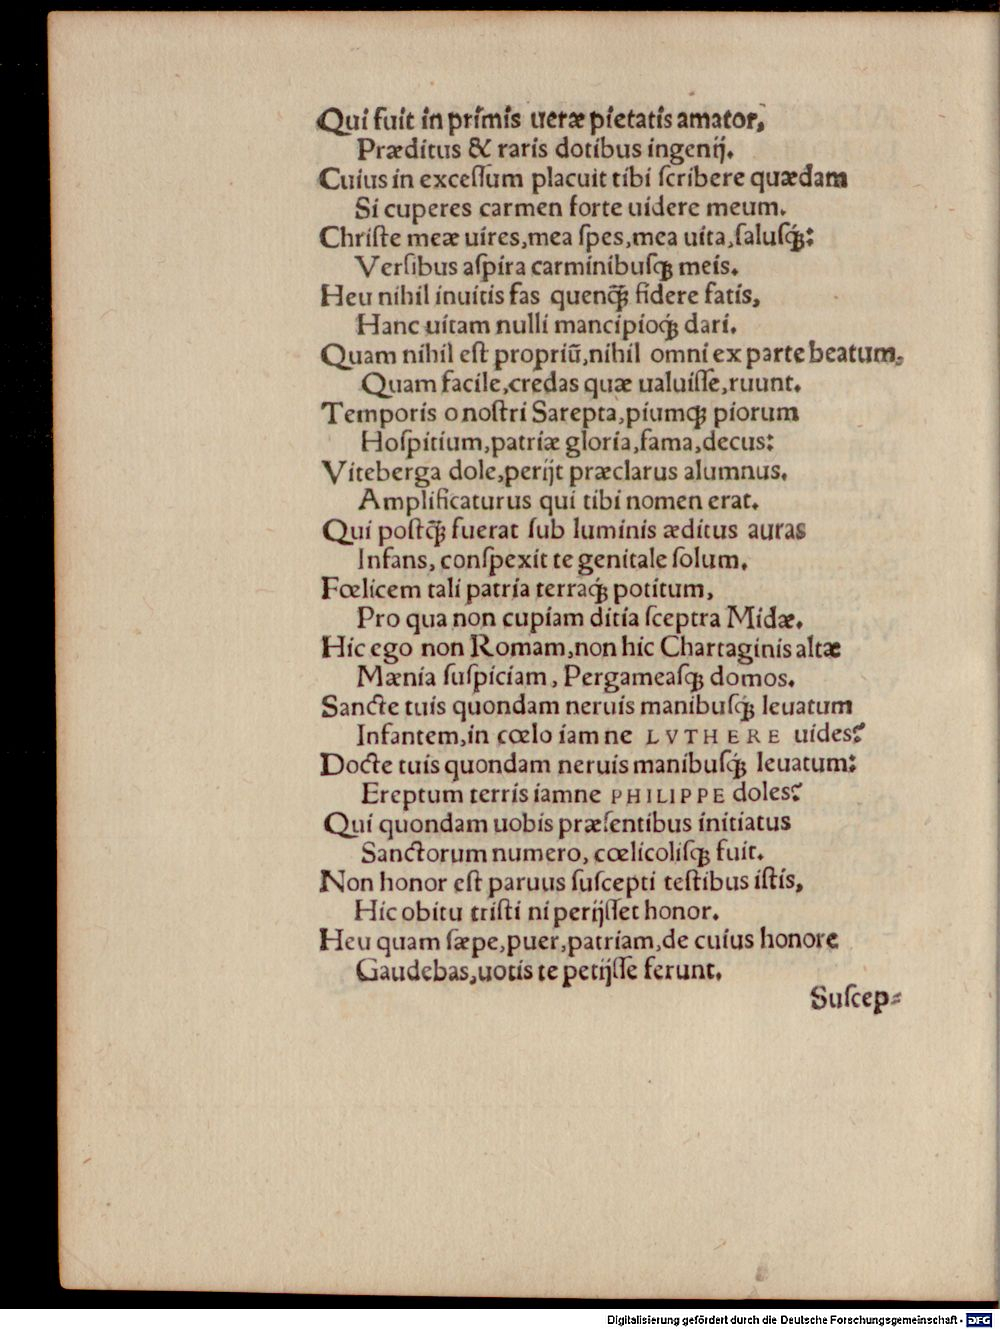 Qui fuit in primis ueræ pietatis amator,
Præditus & raris dotibus ingenij.
Cuius in exceſſum placuit tibi ſcribere quædam
Si cuperes carmen forte uidere meum.
Chriſte meæ uires,mea ſpes,mea uita,ſaluſq́ꝫ:
Verſibus aſpira carminibuſqꝫ meis.
Heu nihil inuitis fas quenq̃ꝫ fidere fatis,
Hanc uitam nulli mancipioq́ꝫ dari.
Quam nihil eſt propriũ,nihil omni ex parte beatum,
Quam facile,credas quæ ualuiſſe,ruunt.
Temporis o noſtri Sarepta,piumqꝫ piorum
Hoſpitium,patriæ gloria,fama,decus:
Viteberga dole,perijt præclarus alumnus.
Amplificaturus qui tibi nomen erat.
Qui poſtq̃ꝫ fuerat ſub luminis æditus auras
Infans, conſpexit te genitale ſolum.
Fœlicem tali patria terraq́ꝫ potitum,
Pro qua non cupiam ditia ſceptra Midæ.
Hic ego non Romam,non hic Chartaginis altæ
Mænia ſuſpiciam, Pergameaſqꝫ domos.
Sancte tuis quondam neruis manibuſq́ꝫ leuatum
Infantem,in cœlo iam ne LVTHERE uides?
Docte tuis quondam neruis manibuſq́ꝫ leuatum:
Ereptum terris iamne PHILIPPE doles?
Qui quondam uobis præſentibus initiatus
Sanctorum numero, cœlicoliſqꝫ fuit.
Non honor eſt paruus ſuſcepti teſtibus iſtis,
Hic obitu triſti ni perijſſet honor.
Heu quam ſæpe,puer,patriam,de cuius honore
Gaudebas,uotis te petijſſe ferunt.
Suſcep⸗
Digitalisierung gefördert durch die Deutsche Forschungsgemeinschaft - DFG